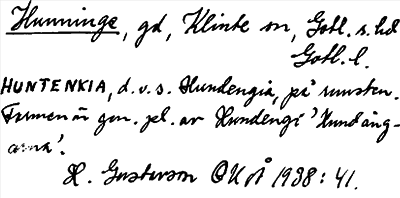 Hunninge, gd, Klinte sn, Gotl. s. hd
Gotl. l.
HUNTENKIA, d.v.s. Hundengia, på runsten.
Formen är gen. pl. av Hundengi 'Hundäng-
arna'.
H. Gustavson GHÅ 1938: 41.